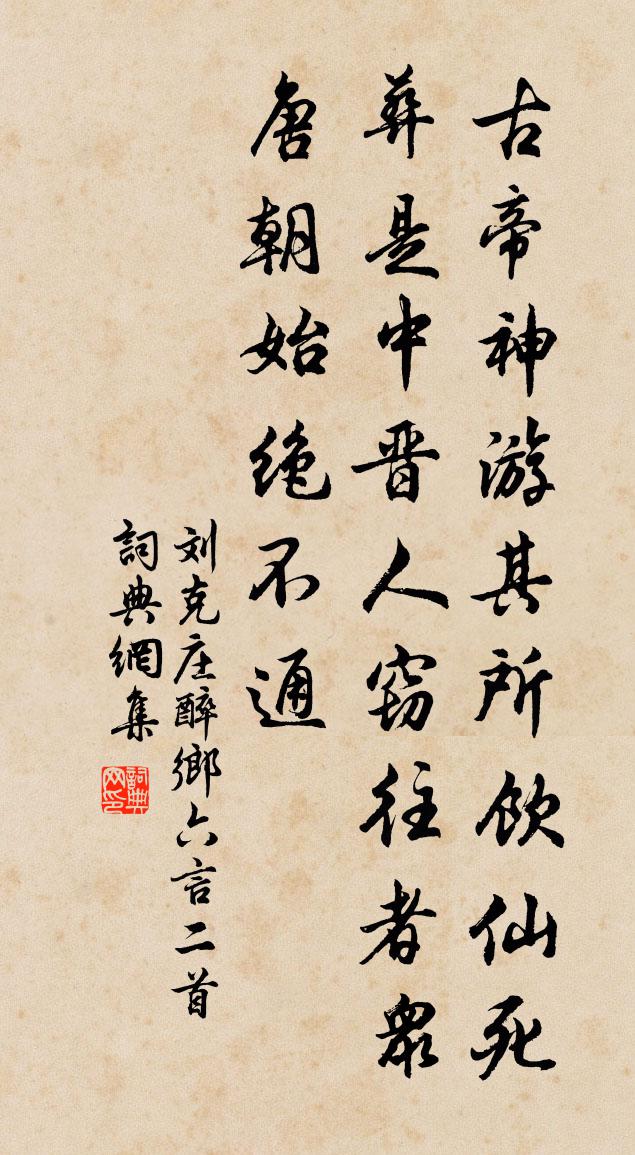 古帝神游其所飲仙死
葬是中晋人窃往者衆
唐朝始绝不通
刘克庄醉鄉六言二首
詞典網集
詞典网印